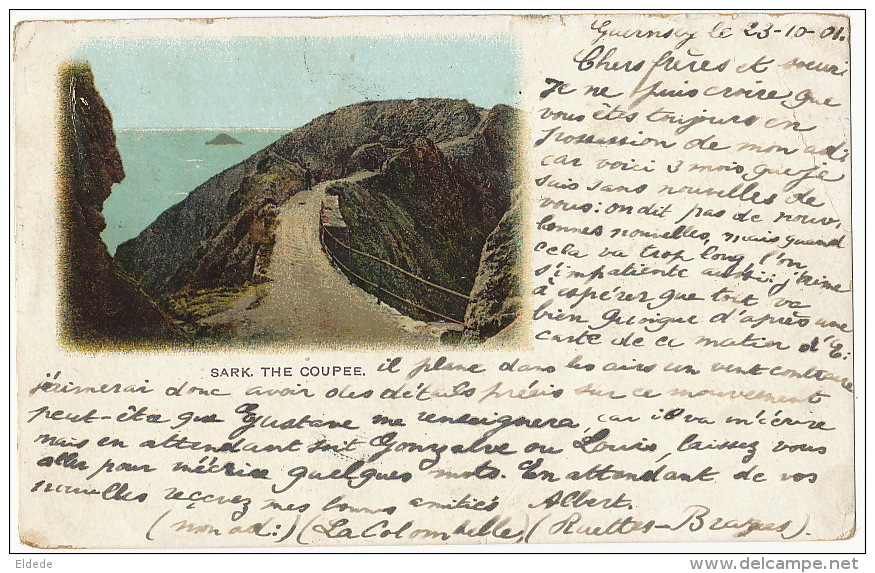 Guernsey le 23-10-01.
Chers frères et soeurs
Je ne puis croire que
vous êtes toujours en
possession de mon adr
car voici 3 mois que je
suis sans nouvelles de
vous: on dit pas de nouv,
bonnes nouvelles, mais quand
cela va trop long, l'on
s'impatiente aussi; j'aime
à espérer que tout va
bien quoique d'après une
carte de ce matin d'
SARK. THE COUPEE.
il plane dans les airs un vent contraire
j'aimerai donc avoir des détails précis sur ce mouvement
peut-être que Gustave me renseignera, car il va m'écrire
mais en attendant soit Gonzalve ou Louis, laissez vous
aller pour m'écrire quelques mots. En attendant de vos
nouvelles reçevez mes bonnes amitiés Albert.
(mon ad:) (La Colombelle, (Ruettes-Brayes).
Eldede
www.delcampe.net